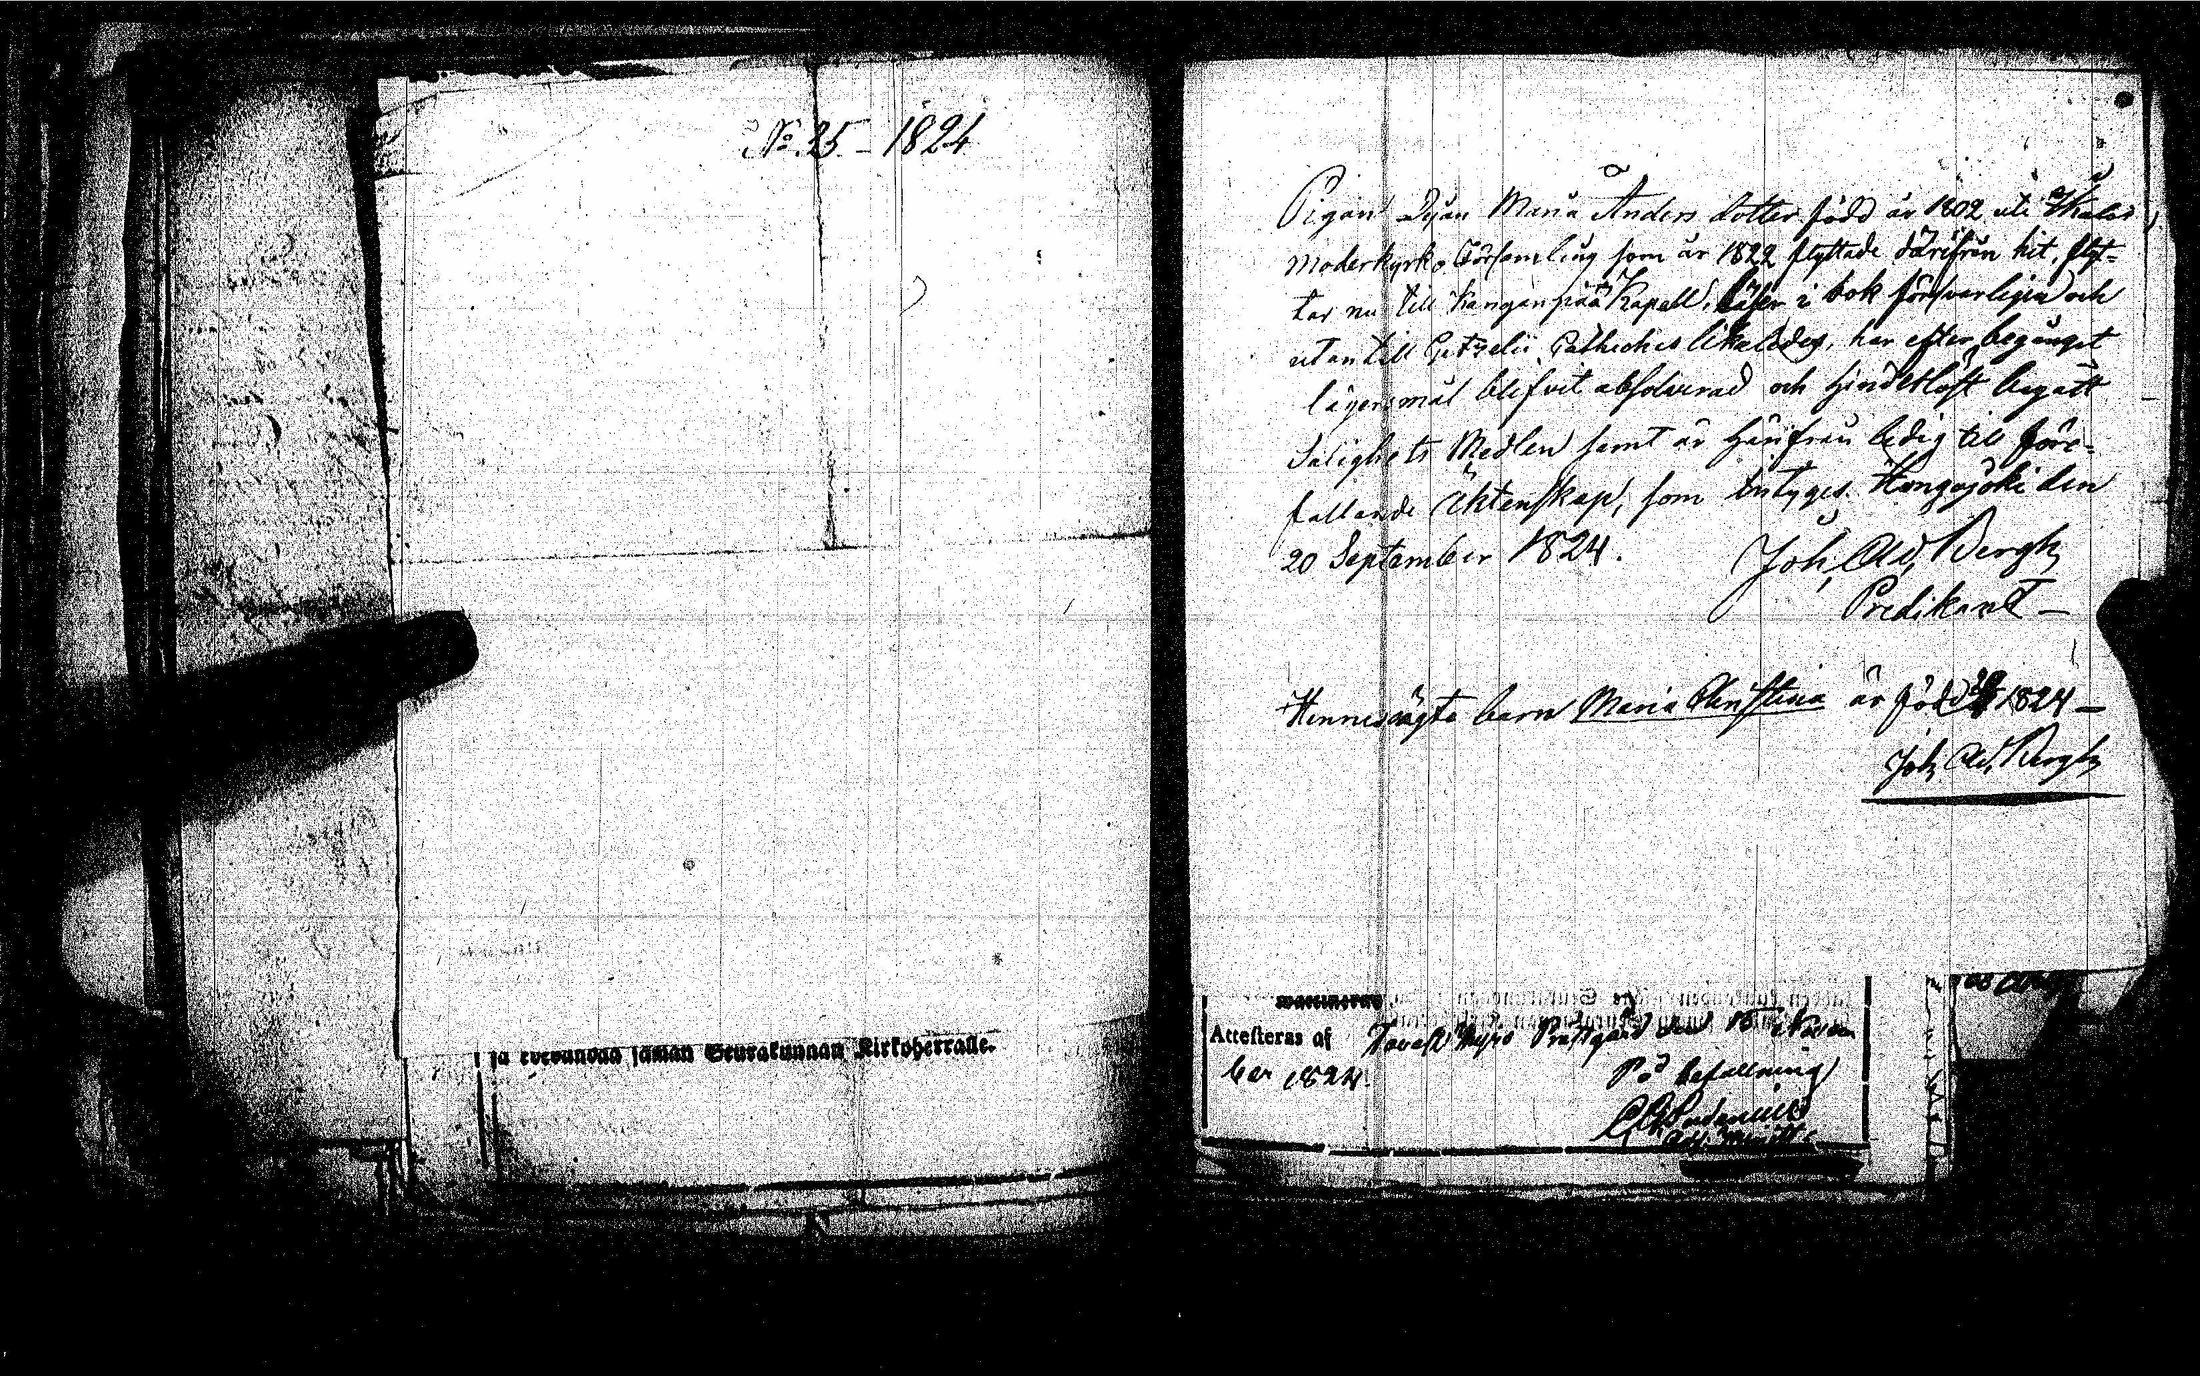 No. 25 - 1824
ja edeꝛannaa saman Seurakunnan Kirkoherralle.
Pigan Maria Anders dotter född år 1802 uti
moderkyrko Församling som år 1822 flyttade därifrån hit, flyt-
tar nu till Kanganpää Kapell, läser i bok försvarligen och
utantill Getzelii Catheches likaledes, har efter begånget
lägersmål blifvit absolverad och hinderlöst begått
Salighets Medlen samt är härifrån ledig till före-
fallande Äktenskap, som intyges. Hongojoki den
20 September 1824. Joh. Ad. Bergh
Predikant -
Hennes oägta barn Maria Christina är född 1824 -
Joh. Ad. Bergh
Attesteras af Prästgård den
ber 1824.
På befallning